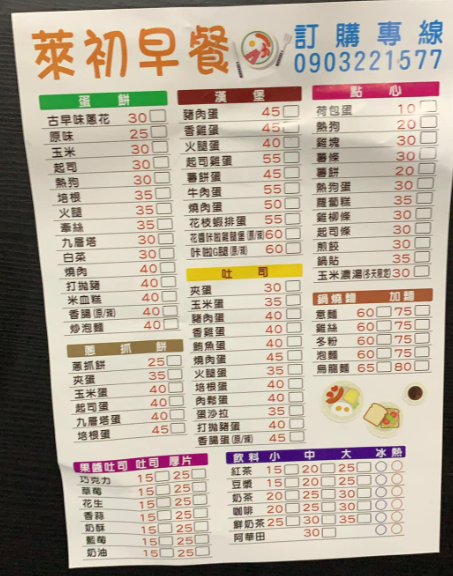 萊初早餐
訂購專線
0903221577
蛋餅
古早味蔥花 30
原味 25
玉米 30
起司 30
熱狗 30
培根 35
火腿 35
牽絲 35
九層塔 30
白菜 30
燒肉 40
打拋豬 40
米血糕 40
香腸(原/辣) 40
炒泡麵 40
蔥抓餅
蔥抓餅 25
夾蛋 35
玉米蛋 40
起司蛋 40
九層塔蛋 40
培根蛋 45
漢堡
豬肉蛋 45
香雞蛋 45
火腿蛋 40
起司雞蛋 55
薯餅蛋 45
牛肉蛋 55
燒肉蛋 50
花枝蝦排蛋 55
花醬咔啦雞腿堡(原/辣) 60
咔啦G腿(原/辣) 60
吐司
夾蛋 30
玉米蛋 35
豬肉蛋 40
香雞蛋 40
鮪魚蛋 40
燒肉蛋 45
火腿蛋 35
培根蛋 40
肉鬆蛋 40
蛋沙拉 35
打拋豬蛋 40
香腸蛋(原/辣) 45
點心
荷包蛋 10
熱狗 20
雞塊 30
薯條 30
薯餅 20
熱狗蛋 30
蘿蔔糕 35
雞柳條 30
起司條 30
煎餃 30
鍋貼 35
玉米濃湯(冬天限定) 30
鍋燒麵 加麵
意麵 60 75
雞絲 60 75
冬粉 60 75
泡麵 60 75
烏龍麵 65 80
果醬吐司 吐司 厚片
巧克力 15 25
草莓 15 25
花生 15 25
香蒜 15 25
奶酥 15 25
藍莓 15 25
奶油 15 25
飲料 小 中 大 冰 熱
紅茶 15 20 25
豆漿 15 20 25
奶茶 20 25 30
咖啡 20 25 30
鮮奶茶 25 30 35
阿華田 30